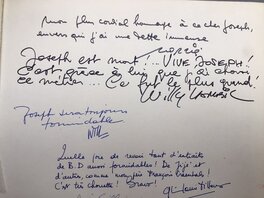 Mon plus cordial hommage à ce cher Joseph,
envers qui j'ai une dette immense
Joseph est mort... VIVE JOSEPH!
C'est grâce à lui que j'ai choisi
ce métier... Ce fut le plus grand!
Willy
Joseph sera toujours
formidable
Will
Quelle joie de savoir tant d'
de B.D aussi formidables! De Jijé et
d'autres, comme moi,
C'est très chouette!